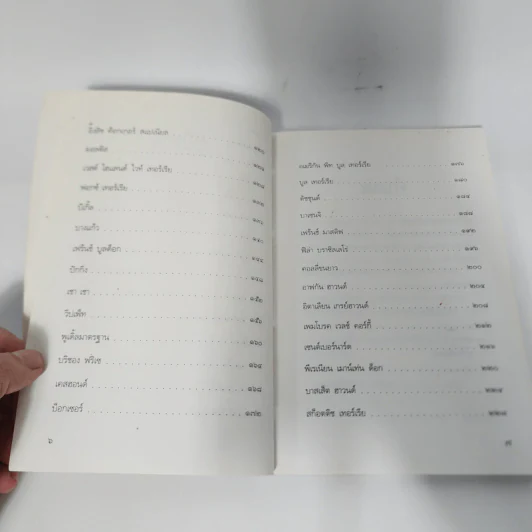 อิงลิช ค๊อกเกอร์ สแปเนียล
คอลลี่
เวสท์ ไฮแลนด์ ไวท์ เทอร์เรีย
ฟอกซ์ เทอร์เรีย
บีเกิ้ล
บางแก้ว
เฟร้นช์ บูลด๊อก
ปักกิ่ง ๑๔๘
เชา เชา ๑๕๒
วิปเพ็ท ๑๕๖
พูเดิ้ลมาตรฐาน ๑๖๐
บริซอง ฟริเซ ๑๖๔
เคสฮอนด์ ๑๖๘
บ๊อกเซอร์ ๑๗๒
๖
อเมริกัน พิท บูล เทอร์เรีย ๑๗๖
บูล เทอร์เรีย ๑๘๐
ดัชชุนด์ ๑๘๔
บาเซนจิ ๑๘๘
เฟร้นช์ มาสติฟ ๑๙๒
ฟิล่า บราซิลเลโร ๑๙๖
คอลลี่ขนยาว ๒๐๐
อาฟกัน ฮาวนด์ ๒๐๔
อิตาเลียน เกรย์ฮาวนด์ ๒๐๘
เพมโบรค เวลช์ คอร์กี้ ๒๑๒
เซนต์เบอร์นาร์ด ๒๑๖
พีเรเนียน เมาน์เท่น ด๊อก ๒๒๐
บาสเส็ต ฮาวนด์ ๒๒๔
สก๊อตติช เทอร์เรีย ๒๒๘
๗